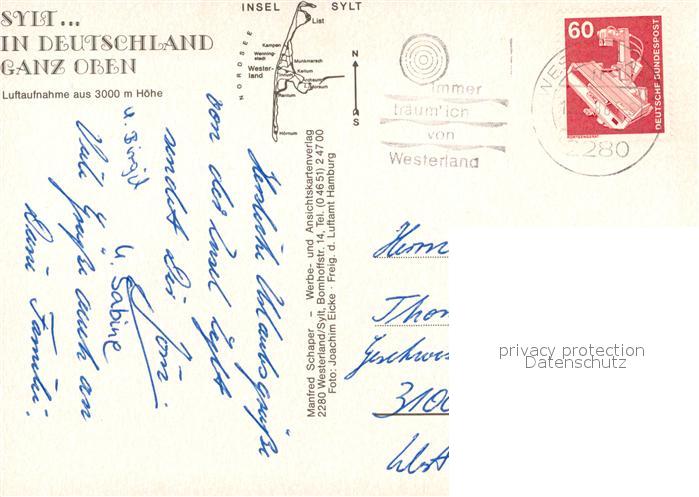 SYLT...
IN DEUTSCHLAND
GANZ OBEN
Luftaufnahme aus 3000 m Höhe
INSEL SYLT
List
NORDSEE
Kampen
Wenning-
stedt
Munkmarsch
Wester-
land
Keitum
Tinnum
Archsum
Morsum
Rantum
Hörnum
N
S
Immer
träum' ich
von
Westerland
60
DEUTSCHE BUNDESPOST
RÖNTGENGERÄT
2280
Herzliche Urlaubsgrüße
von der Insel Sylt
sendet Dir
Jörn
u. Sabine
u. Birgit
Viele Grüße auch an
Deine Familie.
Manfred Schaper – Werbe- und Ansichtskartenverlag
2280 Westerland/Sylt, Bomhoffstr. 14, Tel. (0 46 51) 2 47 00
Foto: Joachim Eicke · Freig. d. Luftamt Hamburg
Herrn
Thom
Geschwis
3100
privacy protection
Datenschutz